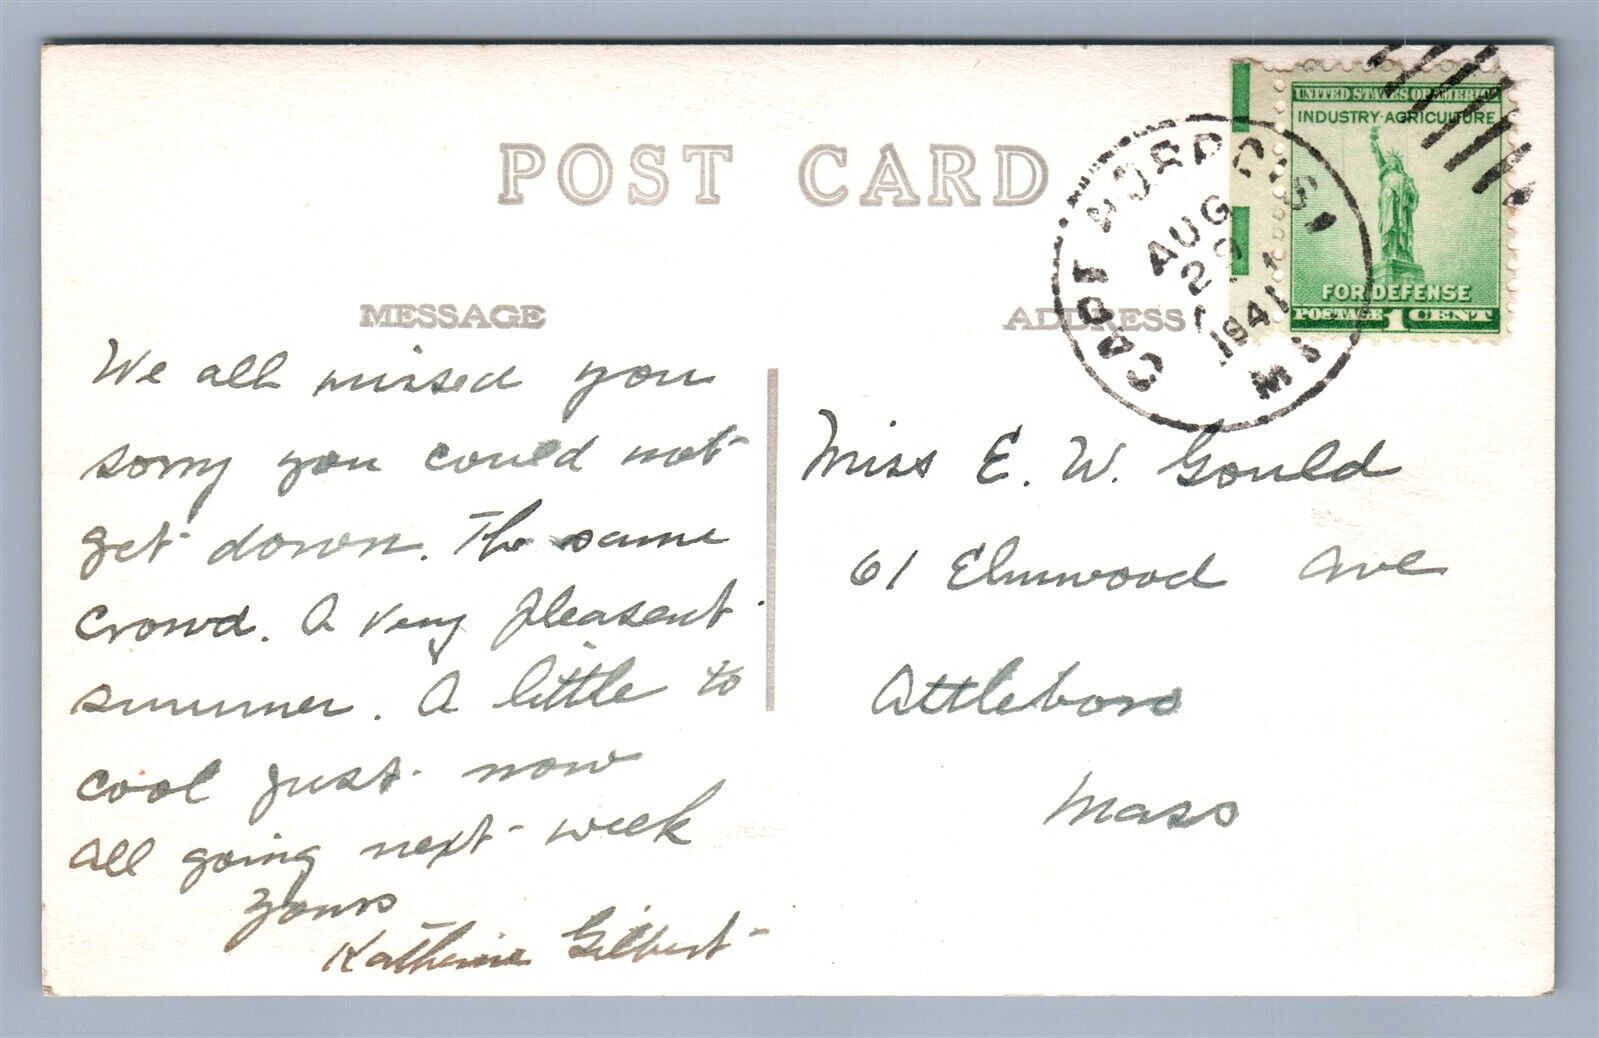 POST CARD
UNITED STATES OF AMERICA
INDUSTRY-AGRICULTURE
FOR DEFENSE
POSTAGE 1 CENT
AUG
1941
MESSAGE
ADDRESS
We all missed you
sorry you could not
get down. The same
crowd. A very pleasant
summer. A little to
cool just now
All going next week
Yours
Katherine Gilbert
Miss E. W. Gould
61 Elmwood Ave
Attleboro
Mass